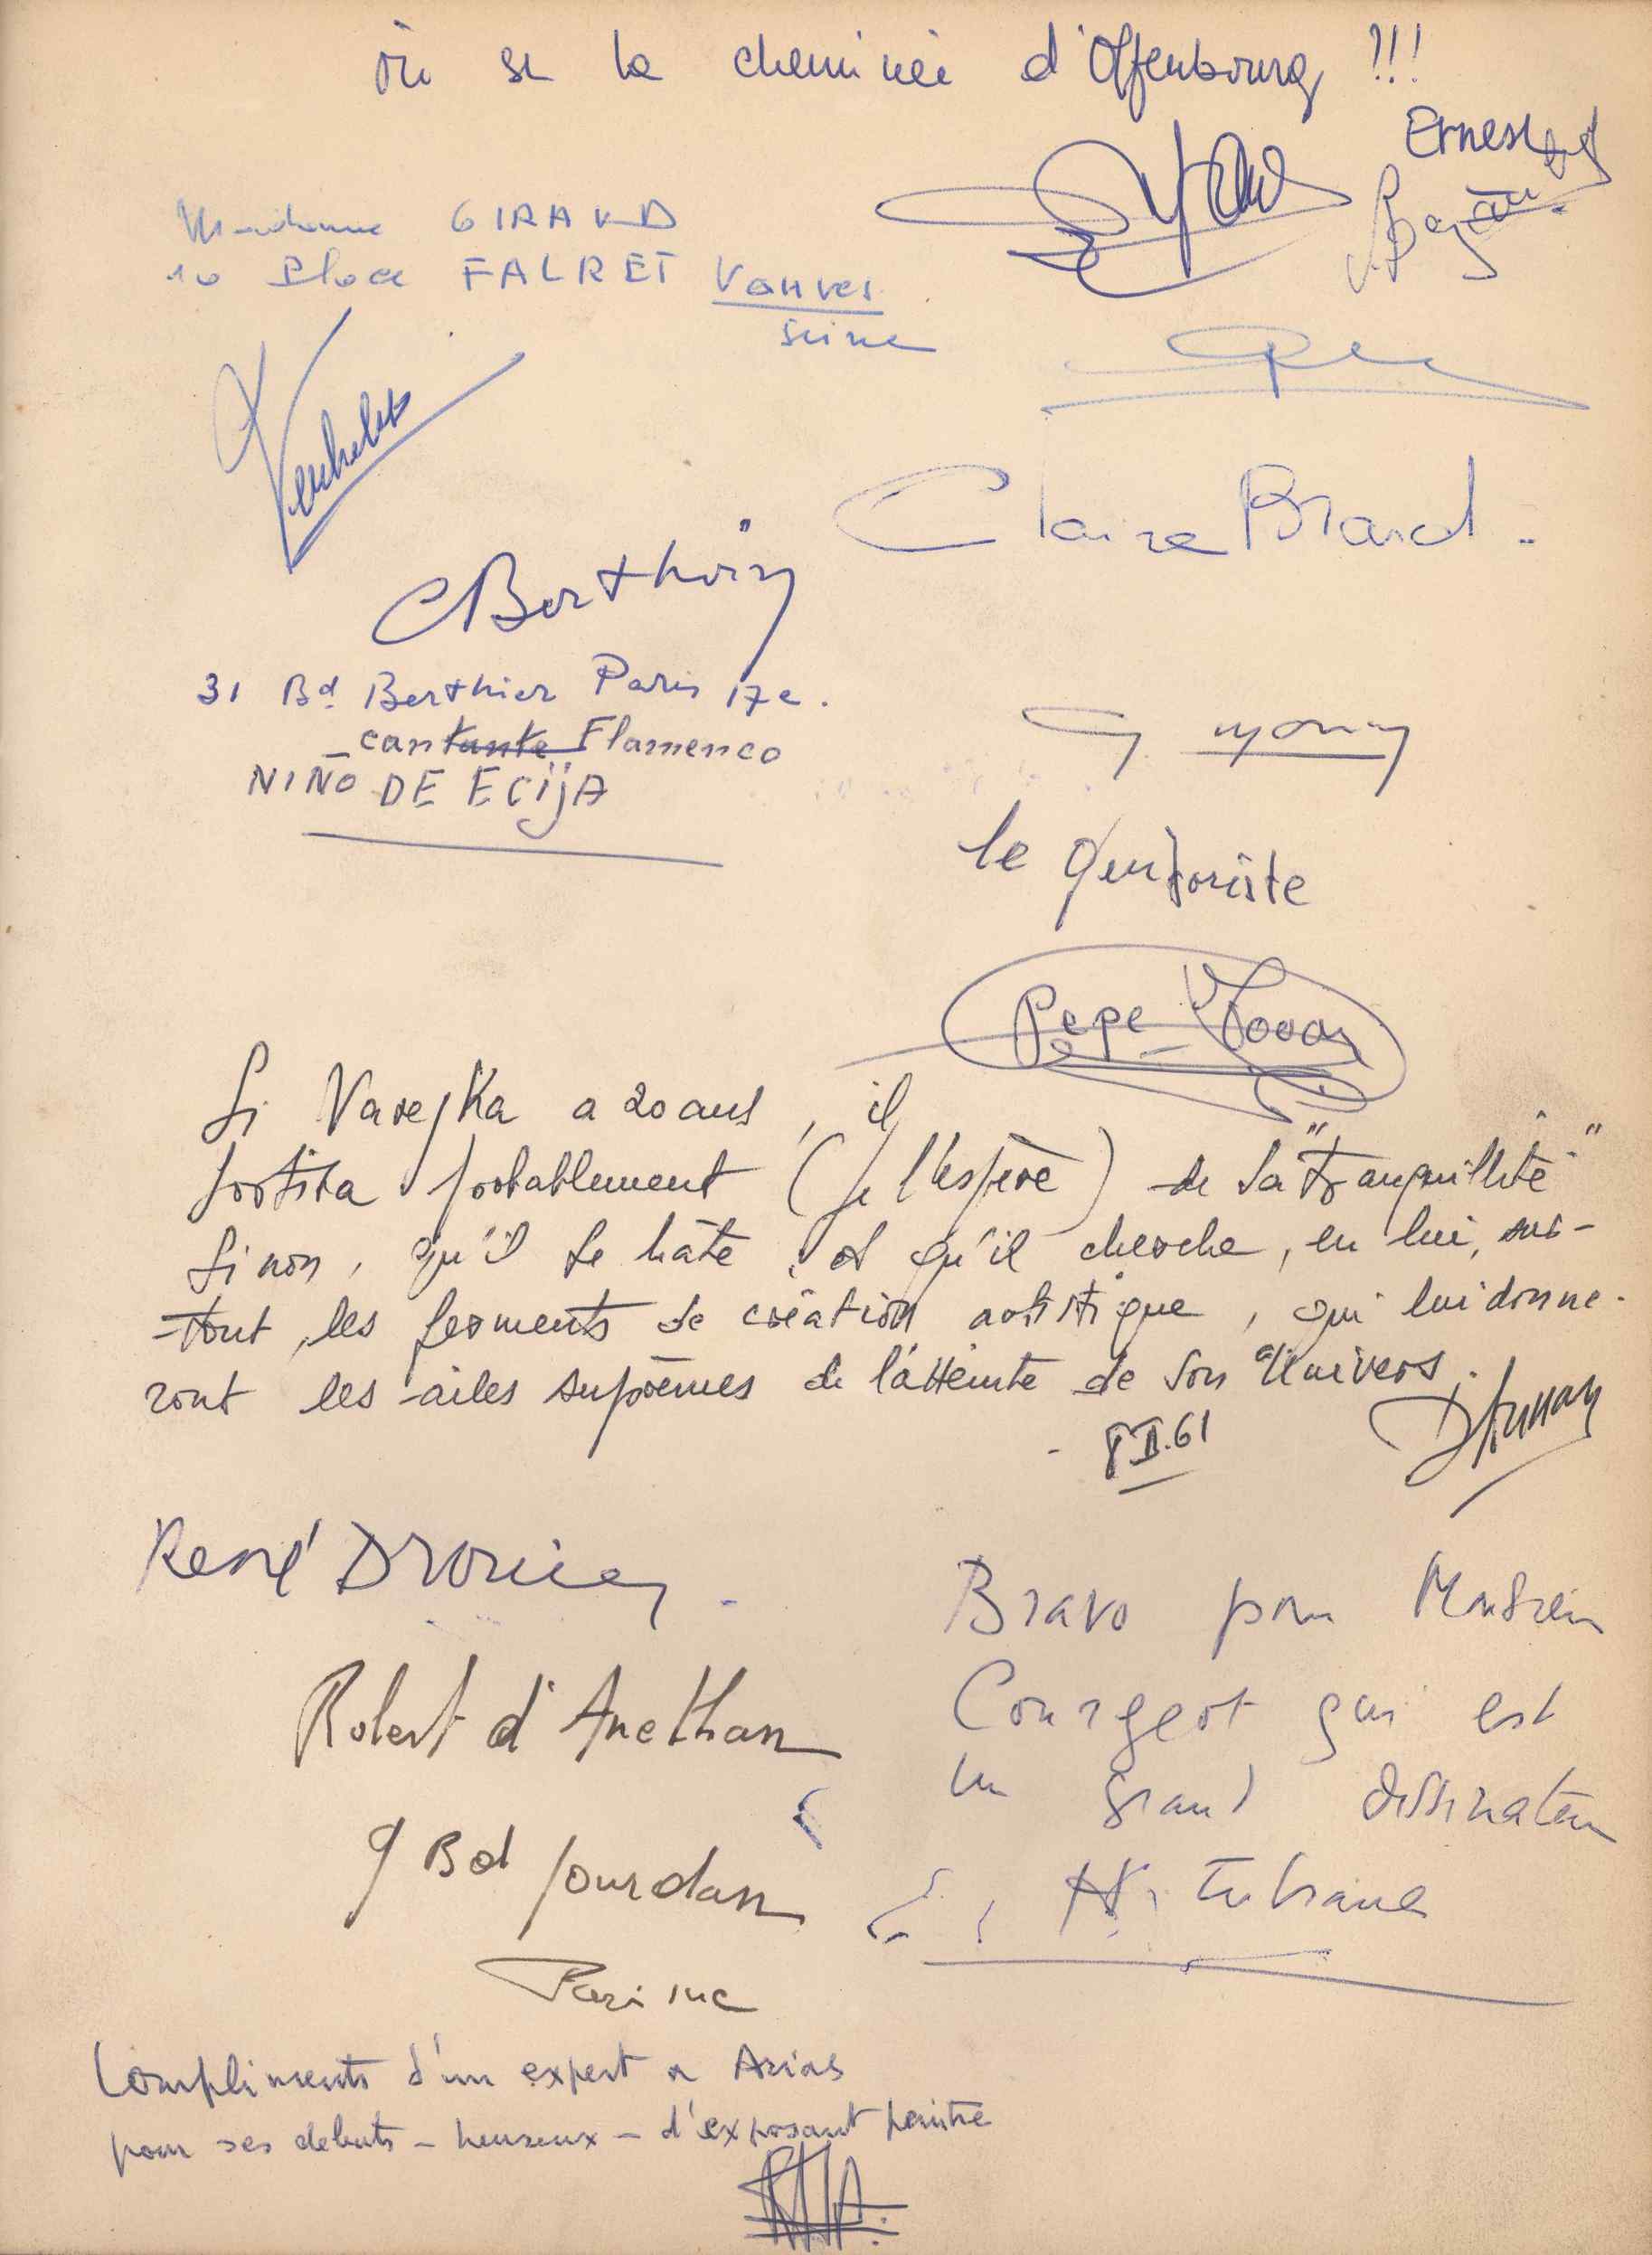 la cheminée d'Offenbourg !!!
Ernest
Madame GIRAUD
10 Place FALRET Vanves
Seine
Claire Brard.
C Berthoin
31 Bd. Berthier Paris 17e.
_cantante Flamenco
NIÑO DE ECIJA
le
Pepe Tovar
Si Vasejka a 20 ans, il
sortira probablement (je l'espère) de sa "tranquillité"
Sinon, qu'il se hâte, et qu'il cherche, en lui, sur-
tout, les ferments de création artistique, qui lui donne-
ront les ailes suprêmes de l'atteinte de son Univers.
- 8 II.61
René Drouin
Robert d'Anethan
9 Bd Jourdan
Paris
Bravo pour Monsieur
Courgeot qui est
un grand dessinateur
Compliments d'un expert a Arias
pour ses debuts - heureux - d'exposant peintre